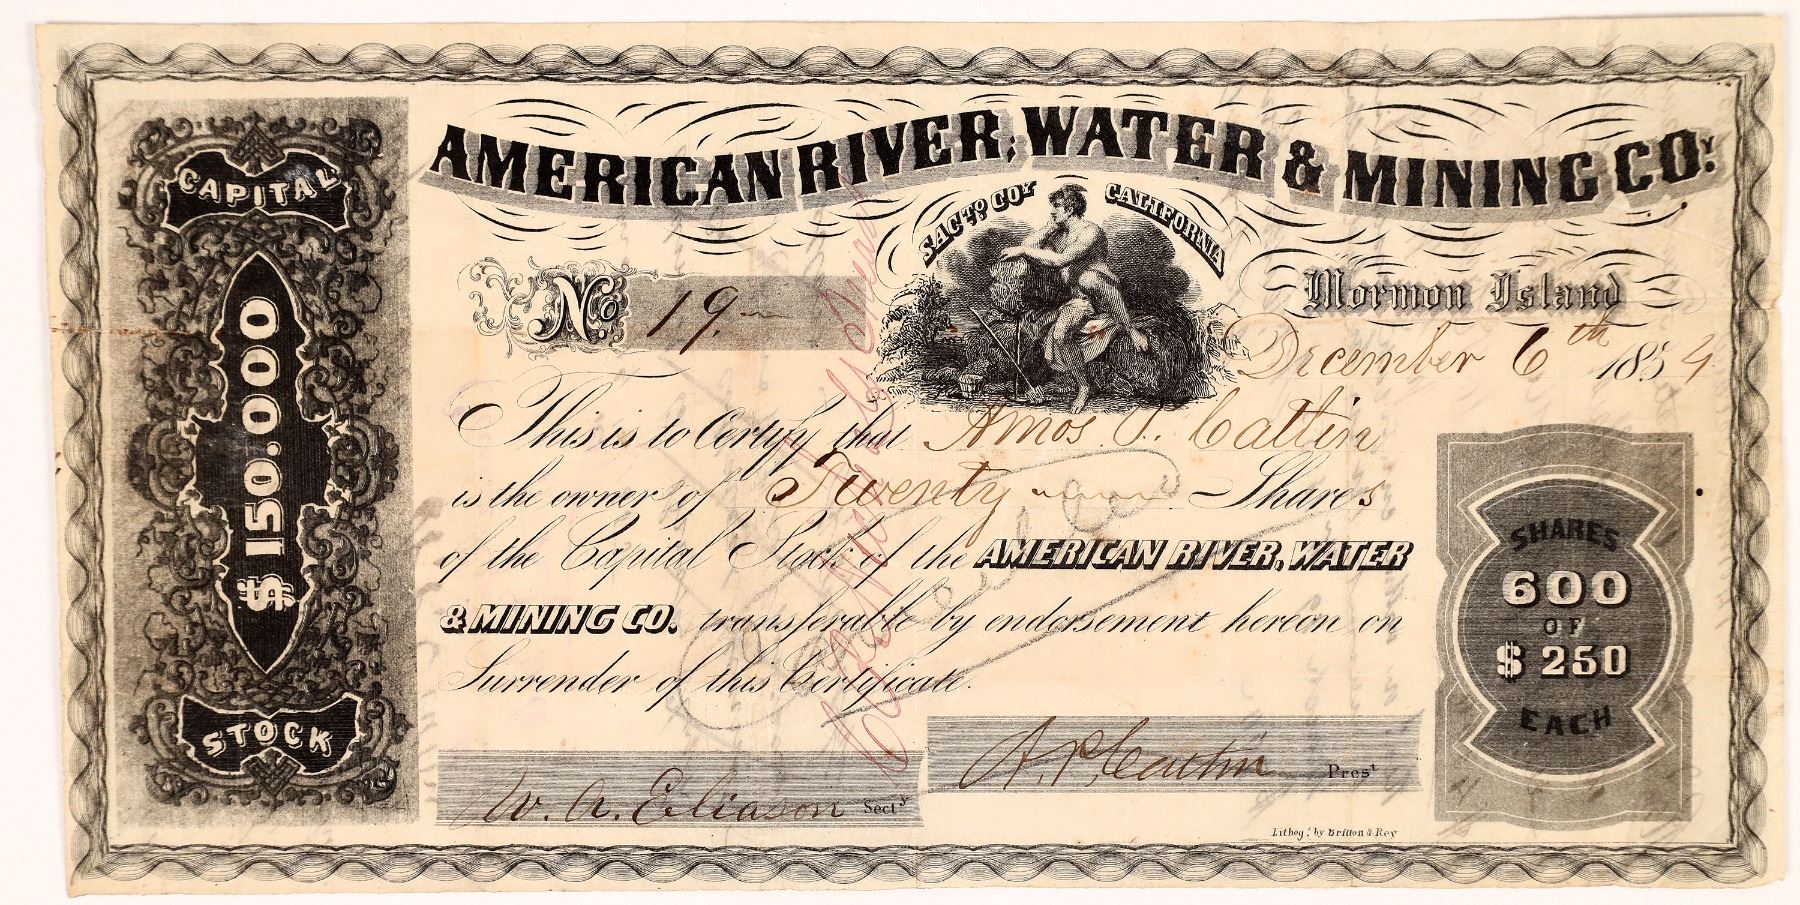 AMERICAN RIVER; WATER & MINING COY.
SACTO. COY CALIFORNIA
CAPITAL
$150.000
STOCK
No. 19.
Mormon Island
December 6th 1854
This is to Certify that Amos P. Catlin
is the owner of Twenty Shares
of the Capital Stock of the AMERICAN RIVER, WATER
& MINING CO. transferable by endorsement hereon on
Surrender of this Certificate.
SHARES
600
OF
$250
EACH
W. A. Eliason Secty
A. P. Catlin Prest
Lithog. by Britton & Rey